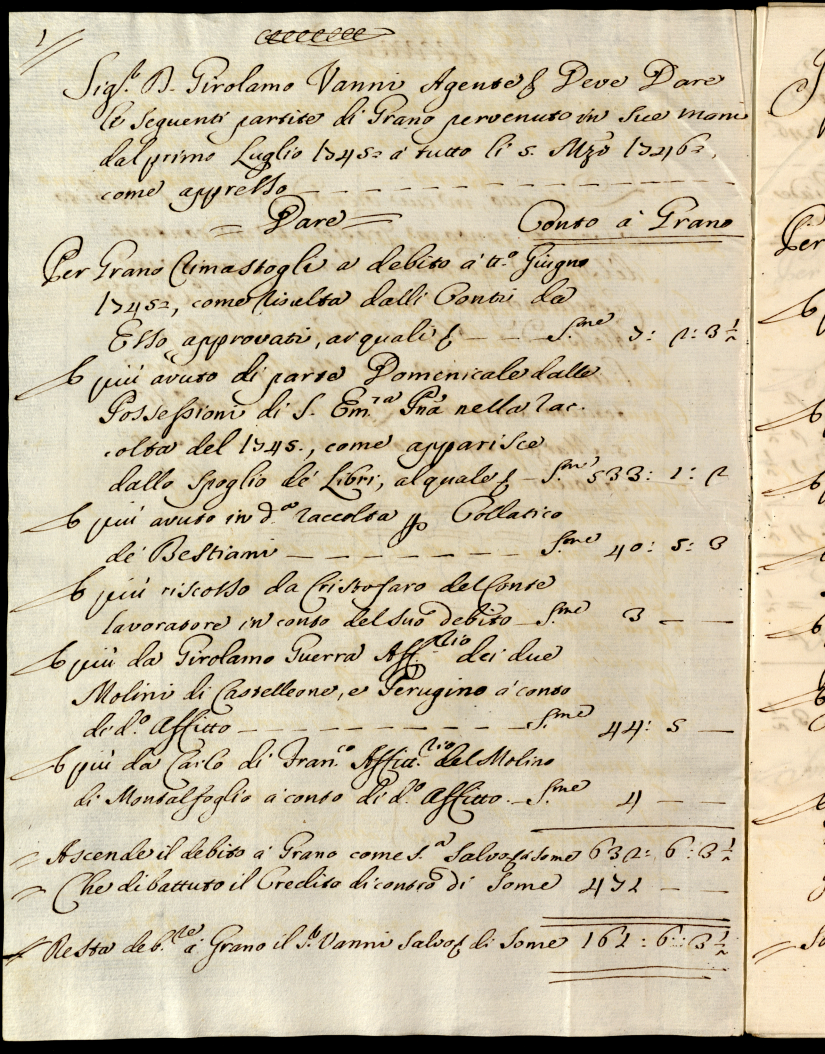 1
Sig.r D. Girolamo Vanni Agente Deve Dare
le seguenti partite di Grano pervenuto in sue mani
dal primo Luglio 1745 a tutto li 5. Mzo 1746,
come appresso
Dare Conto à Grano
Per Grano rimastogli a debito a tt.o Giugno
1745, come risulta dalli Conti da
Esso approvati, a' quali S.me 7: 2: 3 1/2
E più avuto di parte Domenicale dalle
Possessioni di S. Em.za Pña nella rac-
colta del 1745., come apparisce
dallo spoglio de' Libri, al quale S.me 533: 1: 2
E più avuto in d.a raccolta p Collatico
de' Bestiami S.me 40: 5: 3
E più riscosso da Cristofaro del Conte
lavoratore in conto del suo debito S.me 3 — —
E più da Girolamo Guerra Aff.rio dei due
Molini di Castelleone, e Perugino a conto
di d.o Affitto S.me 44: 5 —
E più da Carlo di Fran.co Affit.rio del Molino
di Montalfoglio a conto di d.o Affitto. S.me 4 — —
Ascende il debito a Grano come s.a salvo Some 632: 6: 3 1/2
Che dibattuto il Credito di contro di Some 471 — —
Resta deb.re a Grano il S.r Vanni salvo di Some 161: 6: 3 1/2